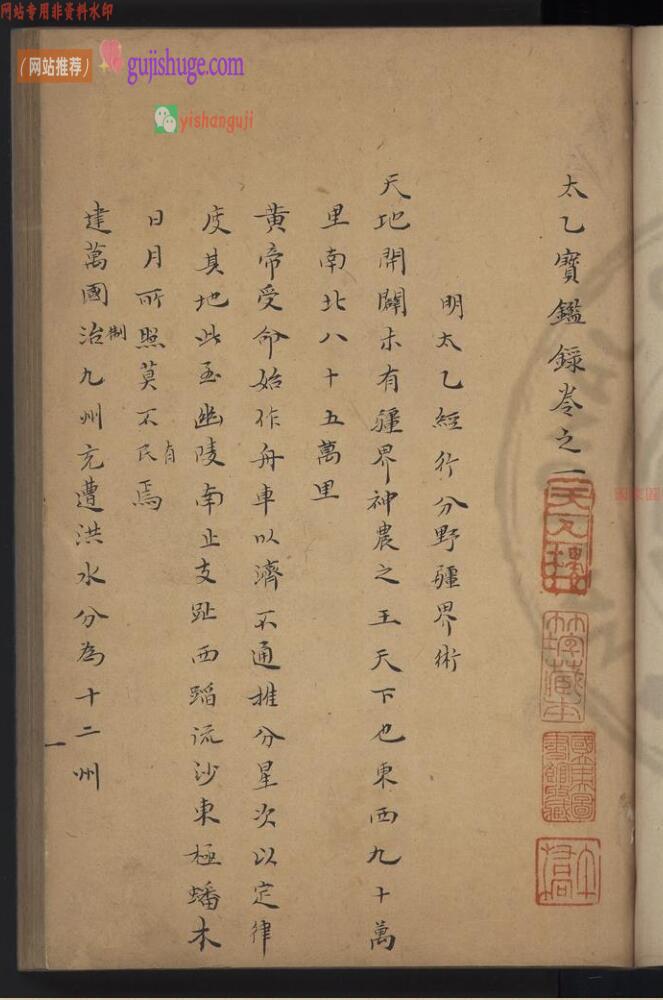 网站专用非资料水印
（网站推荐） gujishuge.com
yishanguji
太乙寶鑑錄卷之一
明太乙經行分野疆界術
天地開闢未有疆界神農之王天下也東西九十萬
里南北八十五萬里
黃帝受命始作舟車以濟不通推分星次以定律
度其地北至幽陵南止支趾西蹈流沙東極蟠木
日月所照莫不民有焉
建萬國治制九州充遭洪水分為十二州
一
國家圖書館藏